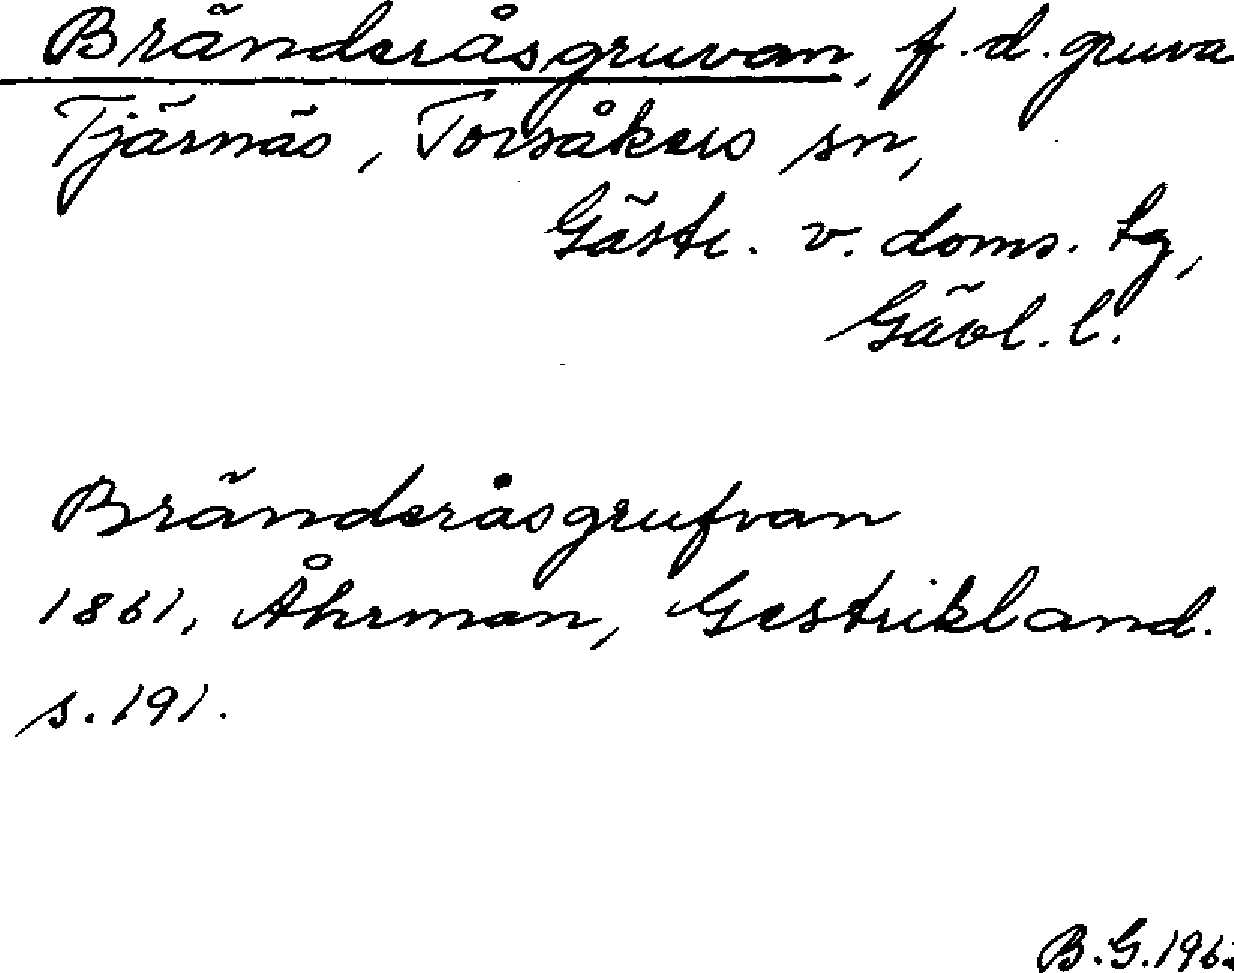 Bränderåsgruvan, f.d. gruva
Tjärnäs, Torsåkers sn,
Gästr. v. doms. tg,
Gävl. l.
Bränderåsgrufvan
1861, Åhrman, Gestrikland.
s. 191.
B.G.